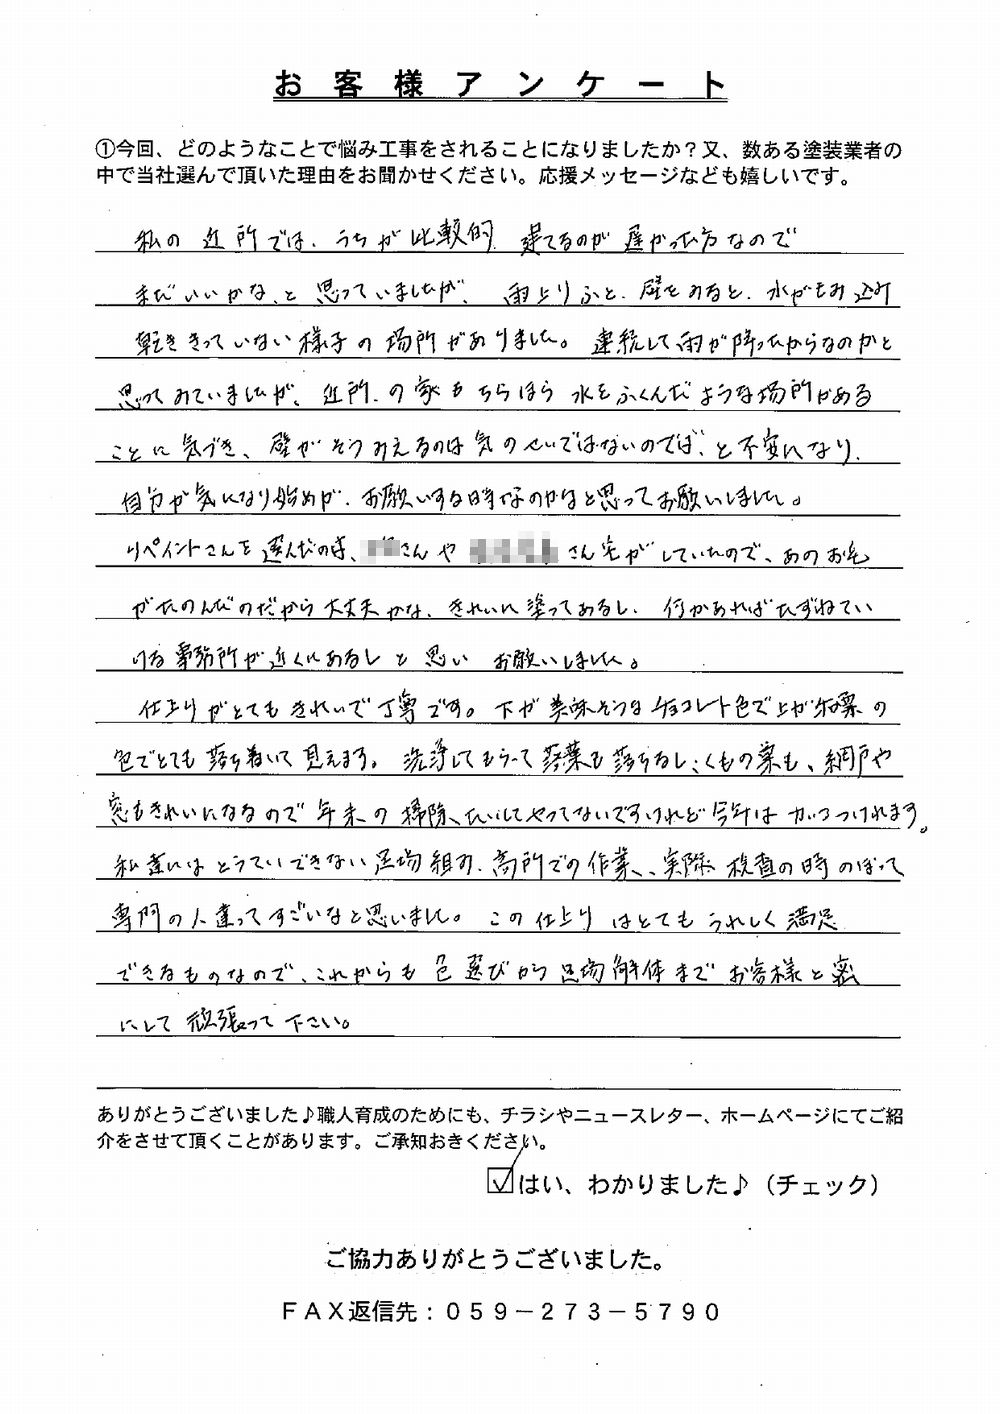 お客様アンケート
①今回、どのようなことで悩み工事をされることになりましたか？又、数ある塗装業者の
中で当社選んで頂いた理由をお聞かせください。応援メッセージなども嬉しいです。
私の近所では、うちが比較的 建てるのが遅かった方なので
まだいいかな、と思っていましたが、雨上りふと、壁をみると、水がもみ込み
乾ききっていない様子の場所がありました。連続して雨が降ったからなのかと
思ってみていましたが、近所の家もちらほら水をふくんだような場所がある
ことに気づき、壁がそうみえるのは気のせいではないのでは、と不安になり、
自分が気になり始めが、お願いする時なのかなと思ってお願いしました。
リペイントさんを選んだのは、さんや さん宅がしていたので、あのお宅
がたのんだのだから大丈夫かな、きれいに塗ってあるし、何かあればたずねてい
ける事務所が近くにあるしと思い お願いしました。
仕上りがとてもきれいで丁寧です。下が美味そうなチョコレート色で上が和栗の
色でとても落ち着いて見えます。洗浄してもらって落葉も落ちるし、くもの巣も、網戸や
窓もきれいになるので年末の掃除、たいしてやってないですけれど今年はカッコつけれます。
私達にはとうていできない足場組み、高所での作業、実際、検査の時のぼって
専門の人達ってすごいなと思いました。この仕上りはとてもうれしく満足
できるものなので、これからも色選びから足場解体までお客様と密
にして頑張って下さい。
ありがとうございました♪職人育成のためにも、チラシやニュースレター、ホームページにてご紹
介をさせて頂くことがあります。ご承知おきください。
☑はい、わかりました♪（チェック）
ご協力ありがとうございました。
ＦＡＸ返信先：０５９－２７３－５７９０